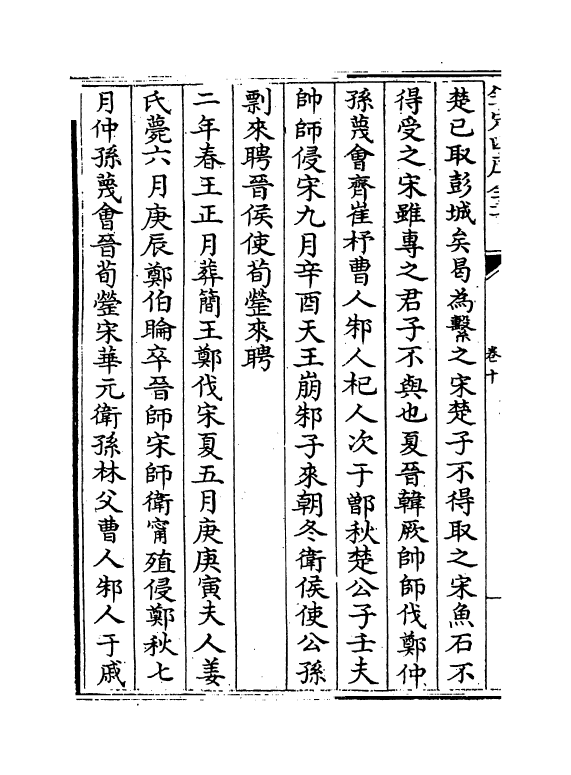 楚已取彭城矣曷為繫之宋楚子不得取之宋魚石不
得受之宋雖專之君子不與也夏晉韓厥帥師伐鄭仲
孫蔑會齊崔杼曹人邾人杞人次于鄫秋楚公子壬夫
帥師侵宋九月辛酉天王崩邾子來朝冬衛侯使公孫
剽來聘晉侯使荀罃來聘
二年春王正月葬簡王鄭伐宋夏五月庚庚寅夫人姜
氏薨六月庚辰鄭伯睔卒晉師宋師衛甯殖侵鄭秋七
月仲孫蔑會晉荀罃宋華元衛孫林父曹人邾人于戚
卷十